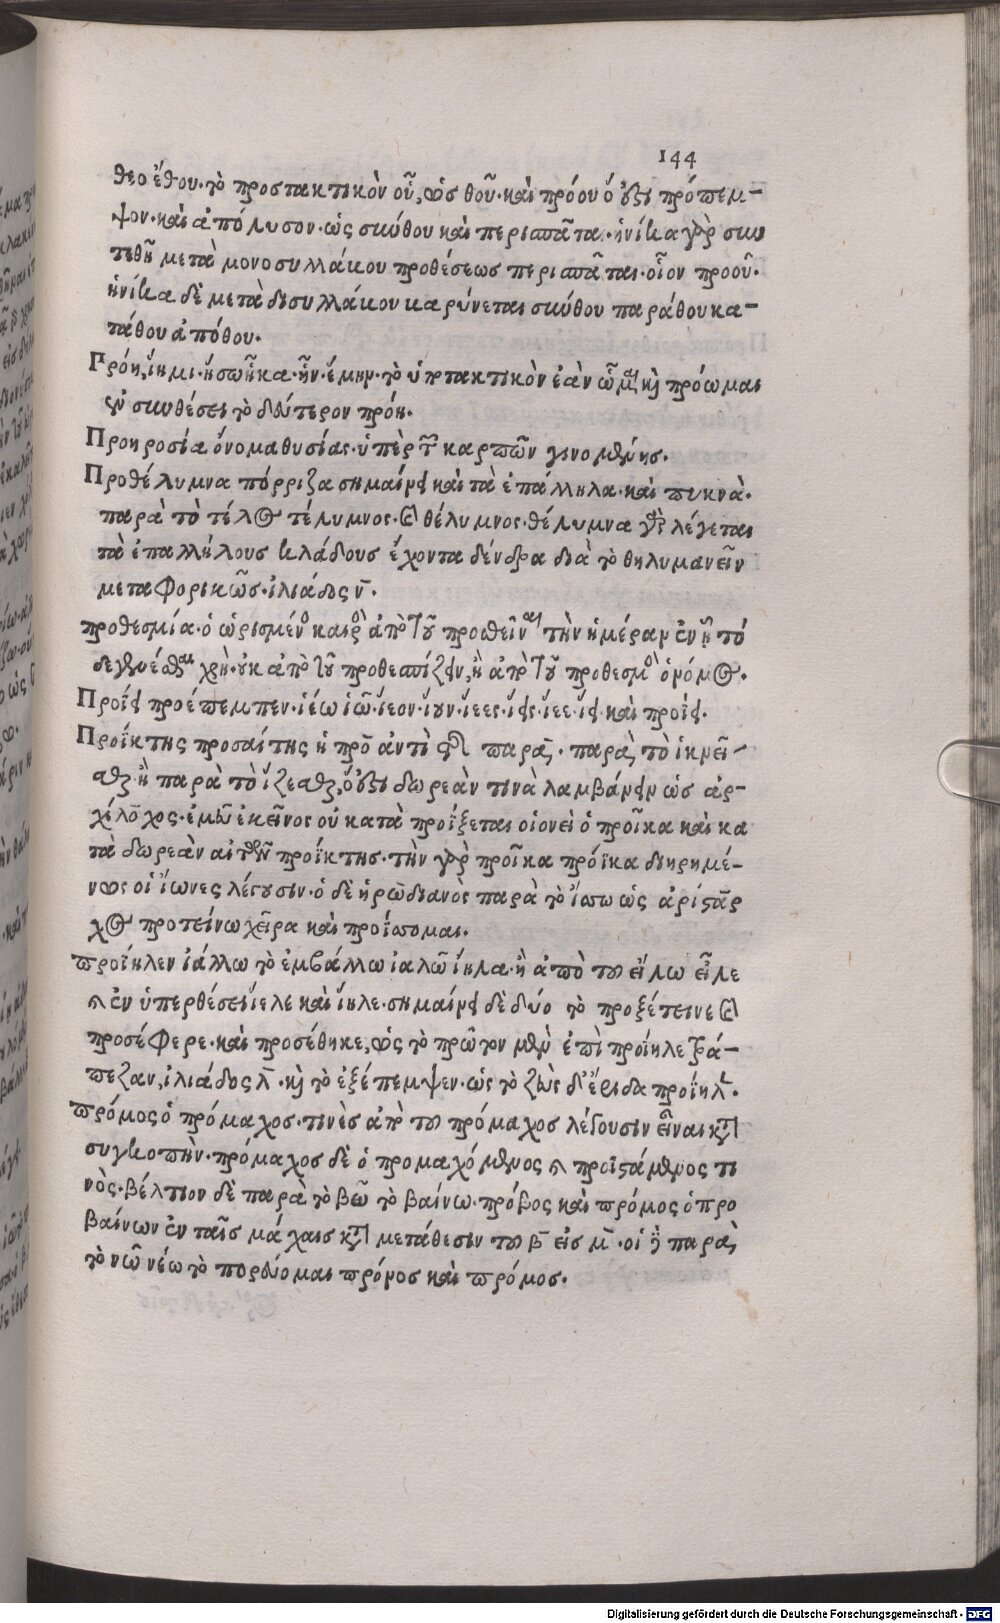 144
θεο ἔθου· τὸ προστακτικὸν οὗ, ὡς θοῦ· καὶ πρόου ὅ ἐστι πρόπεμ-
ψον· καὶ ἀπόλυσον· ὡς σύνθου καὶ περισπᾶται· ἡνίκα γὰρ συν
τεθῆ μετὰ μονοσυλλάβου προθέσεως περισπᾶται· οἷον προοῦ·
ἡνίκα δὲ μετὰ δισυλλάβου βαρύνεται σύνθου παράθου κα-
τάθου ἀπόθου·
Πρόη, ἵημι· ἥσω ἧκα· ἧν· ἕμην· τὸ ὑποτακτικὸν ἐὰν ὦμαι καὶ πρόωμαι
ἐν συνθέσει τὸ δεύτερον πρόη·
Προηροσία ὄνομα θυσίας· ὑπὲρ τῶν καρπῶν γινομένης·
Προθέλυμνα πόρριζα σημαίνει καὶ τὰ ἐπάλληλα· καὶ πυκνὰ·
παρὰ τὸ τέλος τέλυμνος· καὶ θέλυμνος· θέλυμνα γὰρ λέγεται
τὰ ἐπαλλήλους κλάδους ἔχοντα δένδρα διὰ τὸ θηλυμανεῖν
μεταφορικῶς· ἰλιάδος ν̄·
προθεσμία· ὁ ὡρισμένος καιρὸς ἀπὸ τοῦ προθεῖναι τὴν ἡμέραν ἐν ᾗ τό
δε γενέσθαι χρὴ· οὐκ ἀπὸ τοῦ προθεσπίζειν, ἢ ἀπὸ τοῦ προθεσμὸς ὁ νόμος·
Προΐει προέπεμπεν· ἱέω ἱῶ· ἵεον· ἵουν· ἵεες· ἵεις· ἵεε· ἵει καὶ προΐει·
Προΐκτης προσαίτης ἡ πρὸ ἀντὶ τῆς παρὰ· παρὰ τὸ ἱκνεῖ-
σθαι· ἢ παρὰ τὸ ἵζεσθαι, ὅ ἐστι δωρεὰν τινὰ λαμβάνειν ὡς ἀρ-
χίλοχος· ἐμεῦ ἐκεῖνος οὐ κατὰ προΐξεται οἱονεὶ ὁ προῖκα καὶ κα
τὰ δωρεὰν αἰτῶν προΐκτης· τὴν γὰρ προῖκα πρόϊκα διηρημέ-
νως οἱ ἴωνες λέγουσιν· ὁ δὲ ἡρωδιανὸς παρὰ τὸ ἵπω ὡς ἀρίσταρ
χος προτείνω χεῖρα καὶ προΐσσομαι·
προΐηλεν ἰάλλω τὸ ἐμβάλλω ἰαλῶ ἴηλα· ἢ ἀπὸ τοῦ εἵλω εἷλε
καὶ ἐν ὑπερθέσει ἵελε καὶ ἵηλε· σημαίνει δὲ δύο τὸ προεξέτεινε καὶ
προσέφερε· καὶ προσέθηκε, ὡς τὸ πρῶτον μὲν ἐπὶ προΐηλε τρά-
πεζαν, ἰλιάδος λ̄· καὶ τὸ ἐξέπεμψεν· ὡς τὸ ζεὺς δ' ἔριδα προΐηλε·
πρόμος ὁ πρόμαχος· τινὲς ἀπὸ τοῦ πρόμαχος λέγουσιν εἶναι κατὰ
συγκοπὴν· πρόμαχος δὲ ὁ προμαχόμενος καὶ προϊστάμενος τι
νὸς· βέλτιον δὲ παρὰ τὸ βῶ τὸ βαίνω· πρόβος καὶ πρόμος ὁ προ
βαίνων ἐν ταῖς μάχαις κατὰ μετάθεσιν τοῦ β̄ εἰς μ̄· οἱ δὲ παρὰ
τὸ νῶ νέω τὸ πορεύομαι πρόνος καὶ πρόμος·
Digitalisierung gefördert durch die Deutsche Forschungsgemeinschaft - DFG